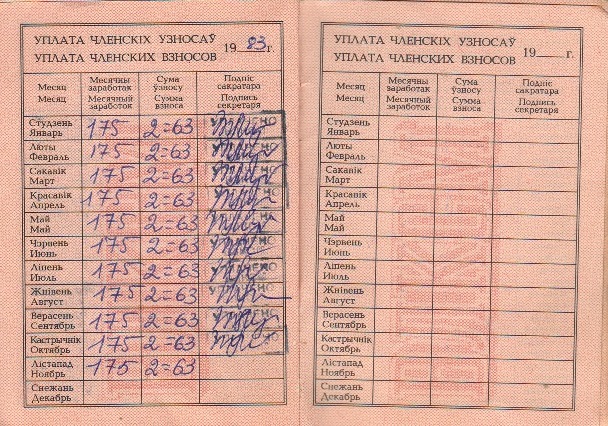 УПЛАТА ЧЛЕНСКІХ УЗНОСАЎ
УПЛАТА ЧЛЕНСКИХ ВЗНОСОВ
19 83 г.
Месяц Месячны заработак Сума ўзносу Подпіс сакратара
Месяц Месячный заработок Сумма взноса Подпись секретаря
Студзень
Январь 175 2=63
Люты
Февраль 175 2=63
Сакавік
Март 175 2=63
Красавік
Апрель 175 2=63
Май
Май 175 2=63
Чэрвень
Июнь 175 2=63
Ліпень
Июль 175 2=63
Жнівень
Август 175 2=63
Верасень
Сентябрь 175 2=63
Кастрычнік
Октябрь 175 2=63
Лістапад
Ноябрь 175 2=63
Снежань
Декабрь
УПЛАТА ЧЛЕНСКІХ УЗНОСАЎ
УПЛАТА ЧЛЕНСКИХ ВЗНОСОВ
19___г.
Месяц Месячны заработак Сума ўзносу Подпіс сакратара
Месяц Месячный заработок Сумма взноса Подпись секретаря
Студзень
Январь
Люты
Февраль
Сакавік
Март
Красавік
Апрель
Май
Май
Чэрвень
Июнь
Ліпень
Июль
Жнівень
Август
Верасень
Сентябрь
Кастрычнік
Октябрь
Лістапад
Ноябрь
Снежань
Декабрь